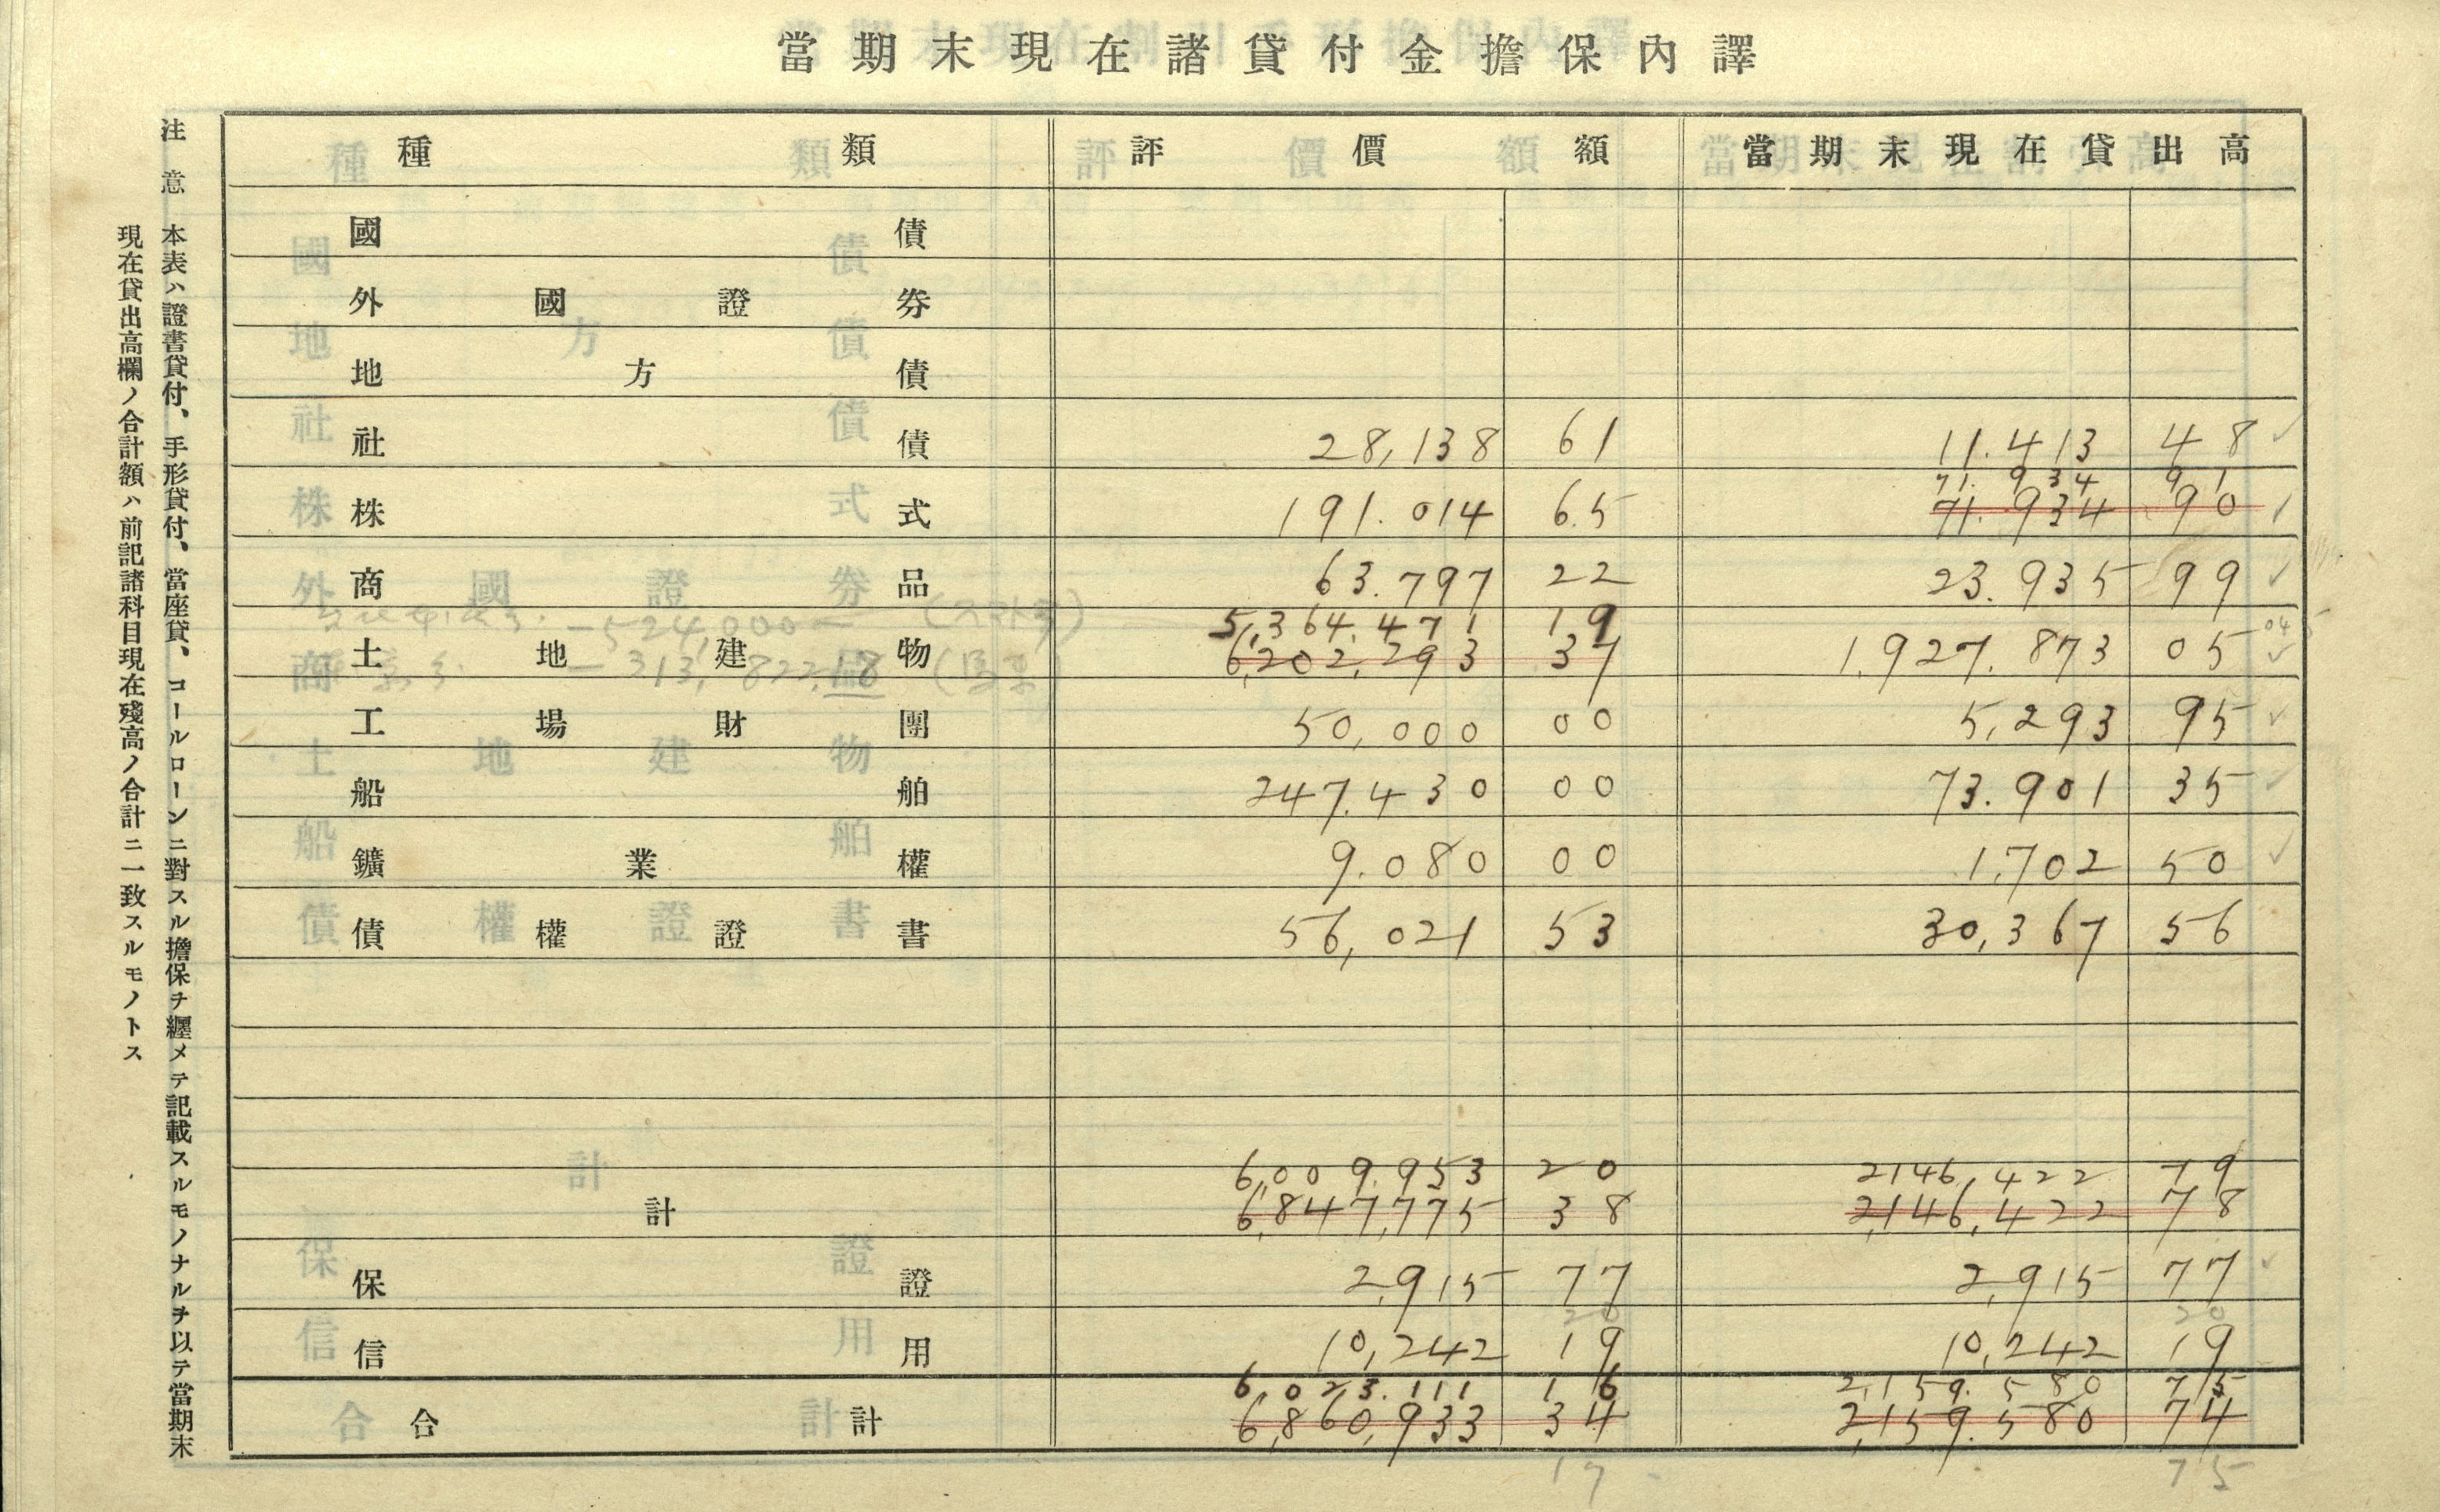 當期末現在諸貸付金擔保內譯
種類 評價額 當期末現在貸出高
國債
外國證券
地方債
社債 28,138 61 11.413 48
71.934 91
株式 191.014 65 71.934 90
商品 63.797 22 23.935 99
5,364.471 19 04
土地建物 6,202,293 37 1,927.873 05
工場財團 50,000 00 5,293 95
船舶 247.430 00 73.901 35
鑛業權 9.080 00 1,702 50
債權證書 56,021 53 30,367 56
6,009.953 20 2146,422 79
計 6,847,775 38 2,146,422 78
保證 2,915 77 2,915 77
20 20
信用 10,242 19 10,242 19
6,023.111 16 2,159.580 75
合計 6,860,933 34 2,159.580 74
17 75
-524,000-
-313,822.18
注意 本表ハ證書貸付、手形貸付、當座貸、コールローンニ對スル擔保ヲ纒メテ記載スルモノナルヲ以テ當期末
現在貸出高欄ノ合計額ハ前記諸科目現在殘高ノ合計ニ一致スルモノトス